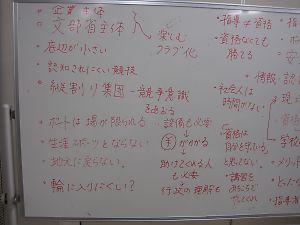 ・企業主体
・文部省主体
楽しむ
クラブ化
・底辺が小さい
・認知されにくい競技
・縦割り集団-競争意識
・ボートは場が限られる…設備も必要
・生涯スポーツとならない
金がかかる
・地元に戻らない。
助けてくれる人も必要
行政の理解も
・輪に入りにくい？
・指導≠資格
・資格なくても
勝てる
・社会人は
時間がない
・資格は
自分を守れる
と思ってない。
・講習を
あちらこちらで
やってくれ
・メリット
・指導者